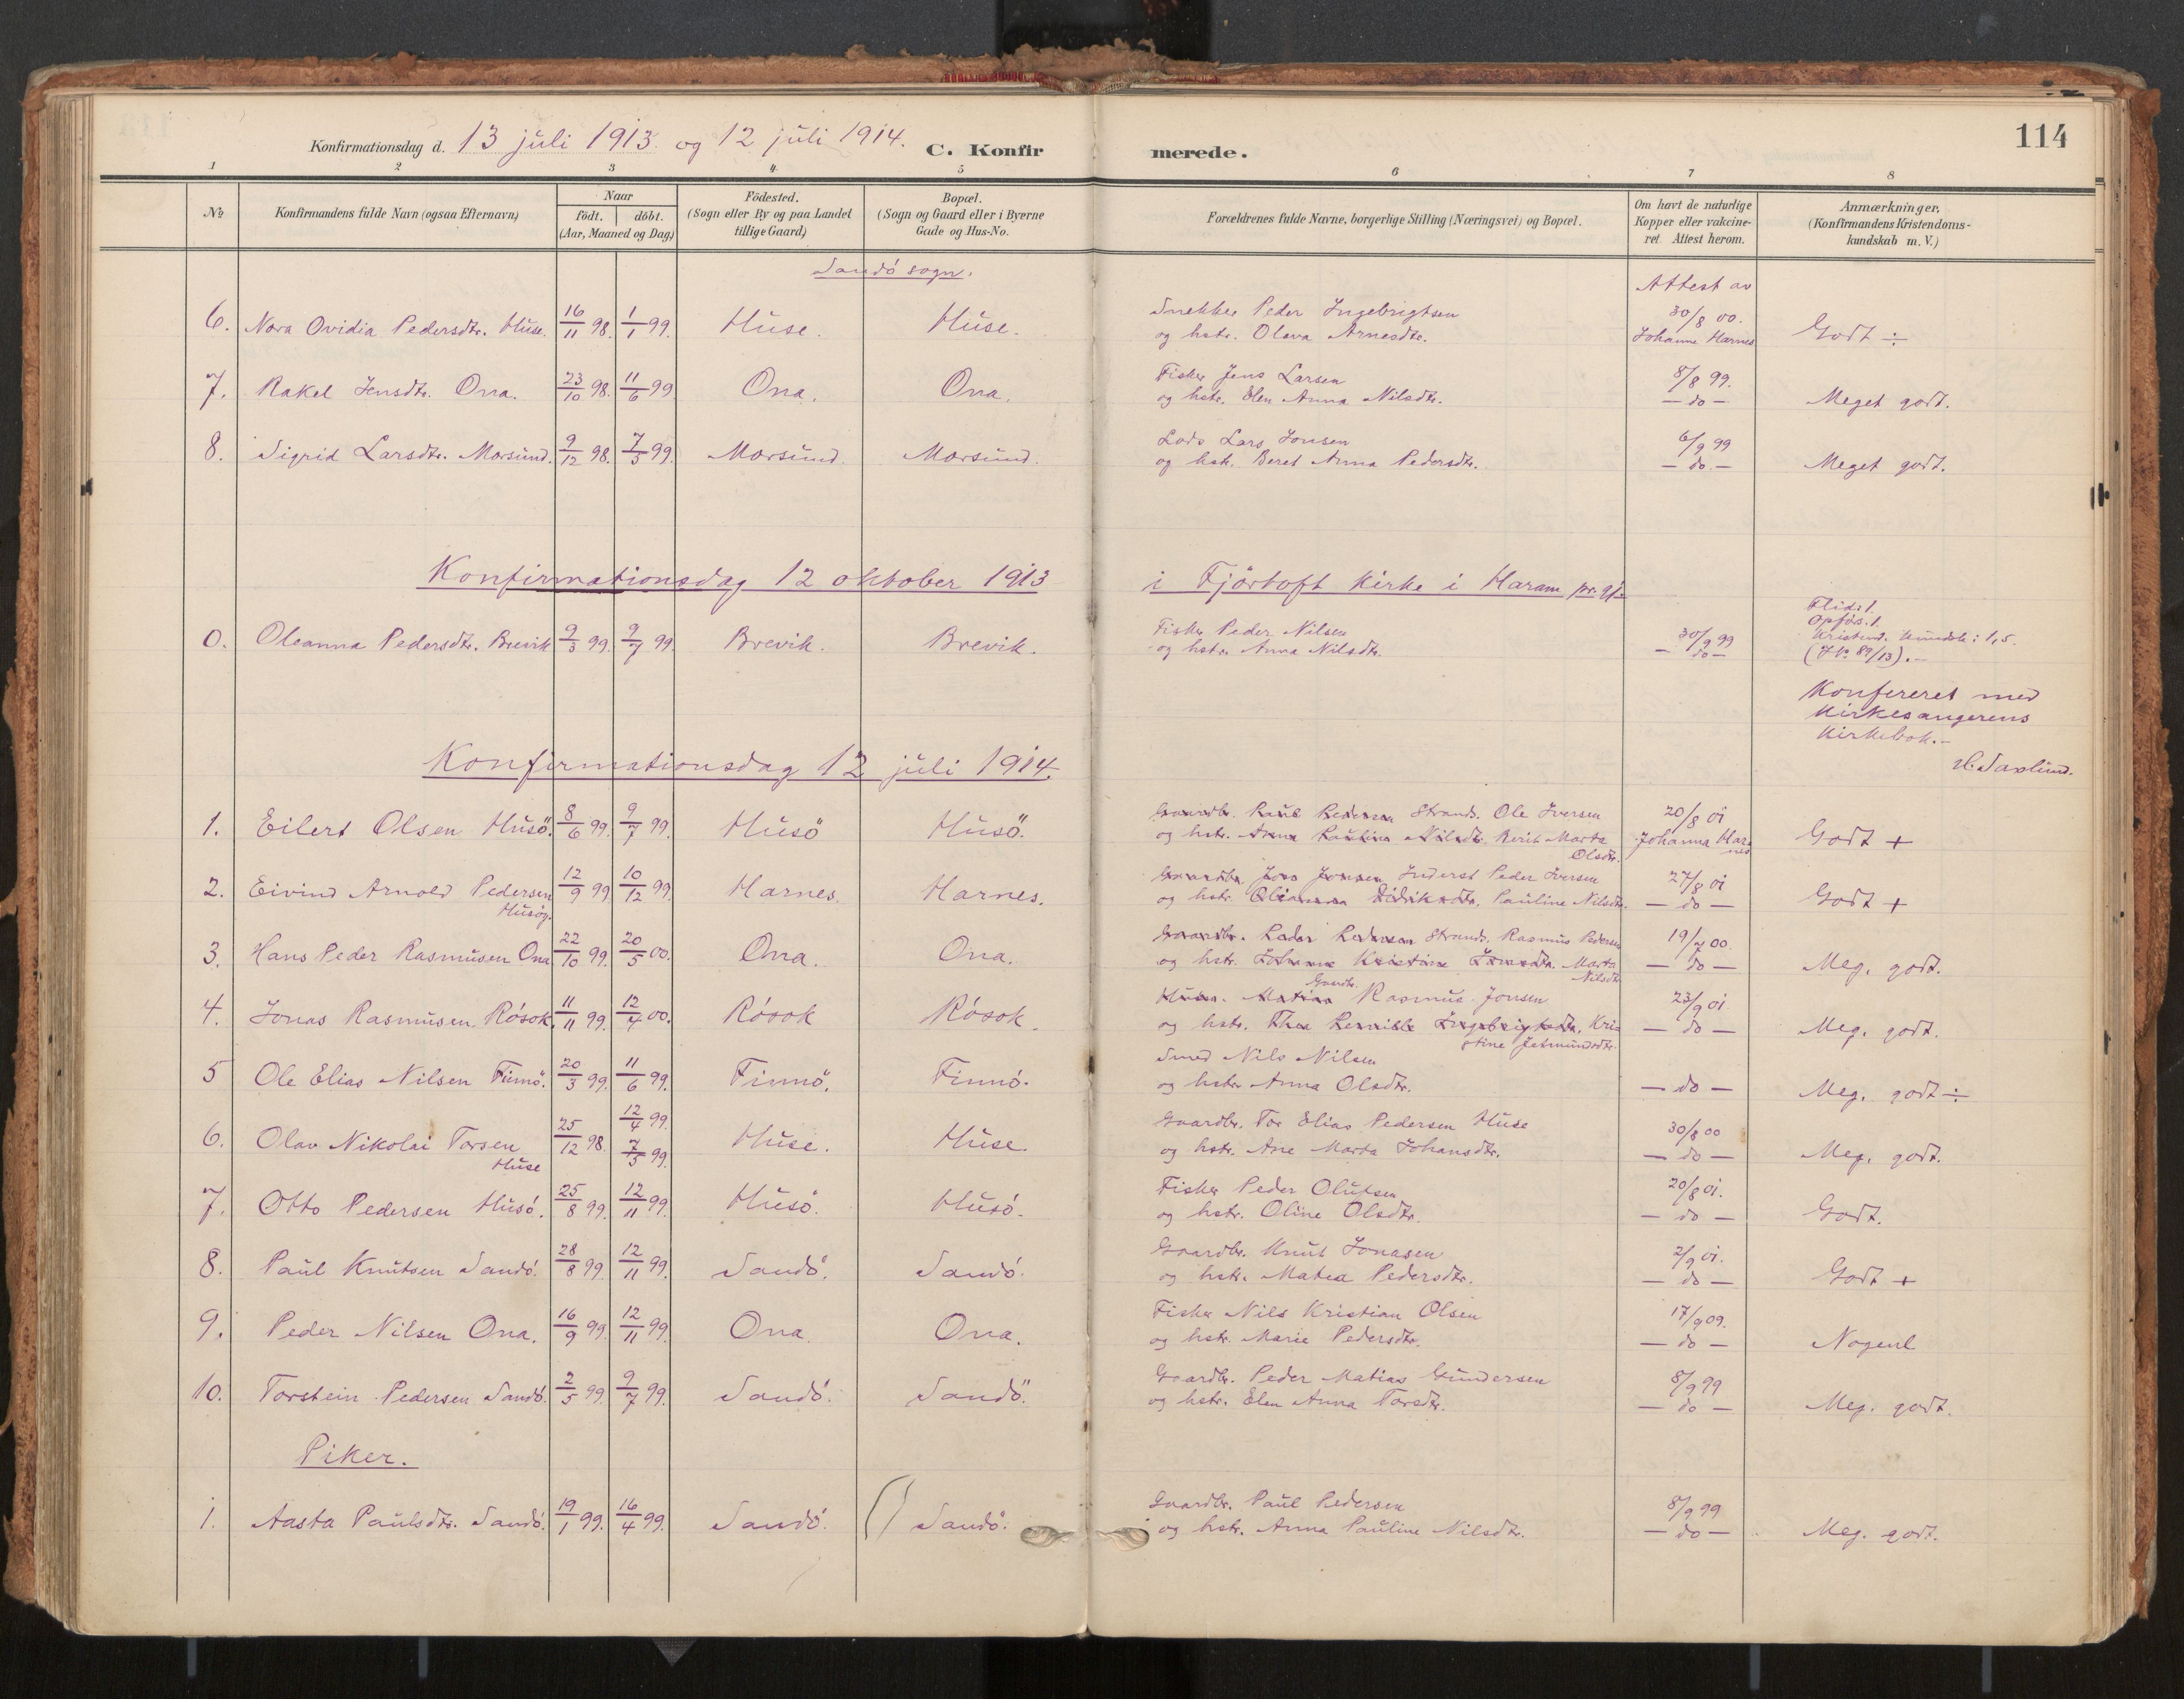 114
Konfirmationsdag d. 13 juli 1913 og 12 juli 1914. C. Konfirmerede.
1 2 3 4 5 6 7 8
No Konfirmandens fulde Navn (ogsaa Efternavn) Naar födt. döbt. (Aar, Maaned og Dag) Födested. (Sogn eller By og paa Landet tillige Gaard) Bopæl. (Sogn og Gaard eller i Byerne Gade og Hus-No. Forældrenes fulde Navne, borgerlige Stilling (Næringsvei) og Bopæl. Om havt de naturlige Kopper eller vakcineret. Attest herom. Anmærkninger. (Konfirmandens Kristendomskundskab m. V.)
Sandö sogn.
Attest av
6. Nora Ovidia Pedersdtr. Huse. 16/11 98. 1/1 99. Huse. Huse. Snekker Peder Ingebrigtsen 30/8 00.
og hstr. Olava Arnesdtr. Johanne Harnes Godt ÷
7. Rakel Jensdtr. Ona. 23/10 98. 11/6 99 Ona. Ona. Fisker Jens Larsen 8/8 99.
og hstr. Elen Anna Nilsdtr. — do — Meget godt.
8. Sigrid Larsdtr. Morsund. 9/12 98. 7/5 99. Morsund. Morsund. Lods Lars Jonsen 6/9 99
og hstr. Beret Anna Pedersdtr. — do — Meget godt.
Konfirmationsdag 12 oktober 1913 i Fjörtoft kirke i Haram pr.gj.
Flid: 1.
Opförs. 1.
0. Oleanna Pedersdtr. Brevik 9/3 99. 9/7 99. Brevik. Brevik. Fisker Peder Nilsen 30/9 99 Kristend. kundsk: 1,5.
og hstr. Anna Nilsdtr. — do — (J.No 89/13). —
Konfereret med
kirkesangerens
kirkebok. —
H. Saxlund.
Konfirmationsdag 12 juli 1914.
1. Eilert Olsen Husö. 8/6 99. 9/7 99. Husö Husö. Gaardbr. Paul Pedersen Strands. Ole Iversen 20/8 01
og hstr. Anna Paulina Nilsdtr. Berit Marta Johanna Har- Godt +
Olsdtr. nes
2. Eivind Arnold Pedersen 12/9 99 10/12 99. Harnes. Harnes. Gaardbr. Jens Jonsen Inderst Peder Iversen 27/8 01
Husöy. og hstr. Olianna Didriksdtr. Pauline Nilsdtr. — do — Godt +
3. Hans Peder Rasmusen Ona 22/10 99. 20/5 00. Ona. Ona. Gaardbr. Peder Pedersen Strands. Rasmus Pedersen 19/7 00.
og hstr. Johanne Kristine Jensdtr. Marta — do — Meg. godt.
Nilsdtr
4. Jonas Rasmusen Rösok. 11/11 99. 12/4 00. Rösok Rösok. Husm. Matias Gaardbr. Rasmus Jonsen 23/9 01.
og hstr. Thea Pernille Ingebrigtsdtr. Kri- — do — Meg. godt.
stine Jetmundsdtr.
5 Ole Elias Nilsen Finnö. 20/3 99. 11/6 99. Finnö. Finnö. Smed Nils Nilsen
og hstr. Anna Olsdtr. — do — Meg. godt ÷
6. Olav Nikolai Torsen 25/12 98. 12/4 99. 7/5 99. Huse. Huse. Gaardbr. Tor Elias Pedersen Huse 30/8 00
Huse og hstr. Ane Marta Johansdtr. — do — Meg. godt.
7. Otto Pedersen Husö. 25/8 99. 12/11 99. Husö. Husö. Fisker Peder Olufsen 20/8 01.
og hstr. Oline Olsdtr. — do — Godt.
8. Paul Knutsen Sandö. 28/8 99. 12/11 99. Sandö. Sandö. Gaardbr. Knut Jonasen 2/9 01.
og hstr. Matea Pedersdtr. — do — Godt +
9. Peder Nilsen Ona. 16/9 99. 12/11 99. Ona. Ona. Fisker Nils Kristian Olsen 17/9 09.
og hstr. Marie Pedersdtr. — do — Nogenl
10. Torstein Pedersen Sandö. 2/5 99. 9/7 99. Sandö. Sandö. Gaardbr. Peder Matias Gundersen 8/9 99
og hstr. Elen Anna Torsdtr. — do — Meg. godt.
Piker.
1. Aasta Paulsdtr. Sandö. 19/1 99. 16/4 99. Sandö. Sandö. Gaardbr. Paul Pedersen 8/9 99
og hstr. Anna Pauline Nilsdtr. — do — Meg. godt.